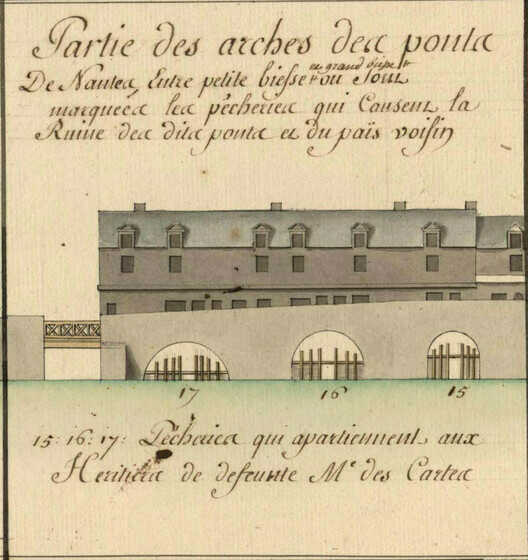 Partie des arches des ponts
De Nantes, Entre petite biesse ou Sont
marqueés les pècheries qui Causent la
Ruine des dits ponts et du païs voisin
17 16 15
15: 16: 17: Pècheries qui apartiennent aux
Heritiers de defeunte Me des Cartes